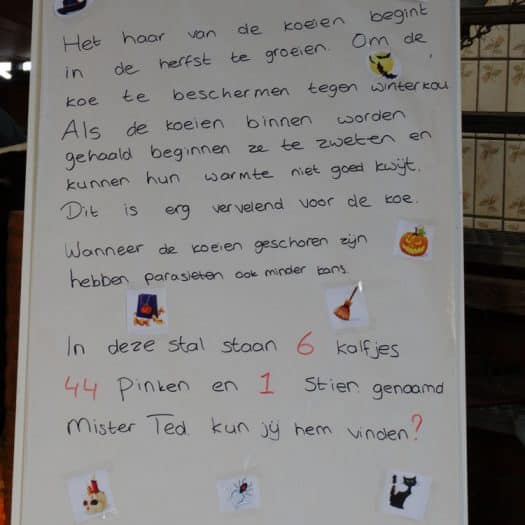 Het haar van de koeien begint
in de herfst te groeien. Om de
koe te beschermen tegen winterkou
Als de koeien binnen worden
gehaald beginnen ze te zweten en
kunnen hun warmte niet goed kwijt.
Dit is erg vervelend voor de koe.
Wanneer de koeien geschoren zijn
hebben parasieten ook minder kans.
In deze stal staan 6 kalfjes
44 Pinken en 1 Stier. genaamd
Mister Ted. kun jij hem vinden?